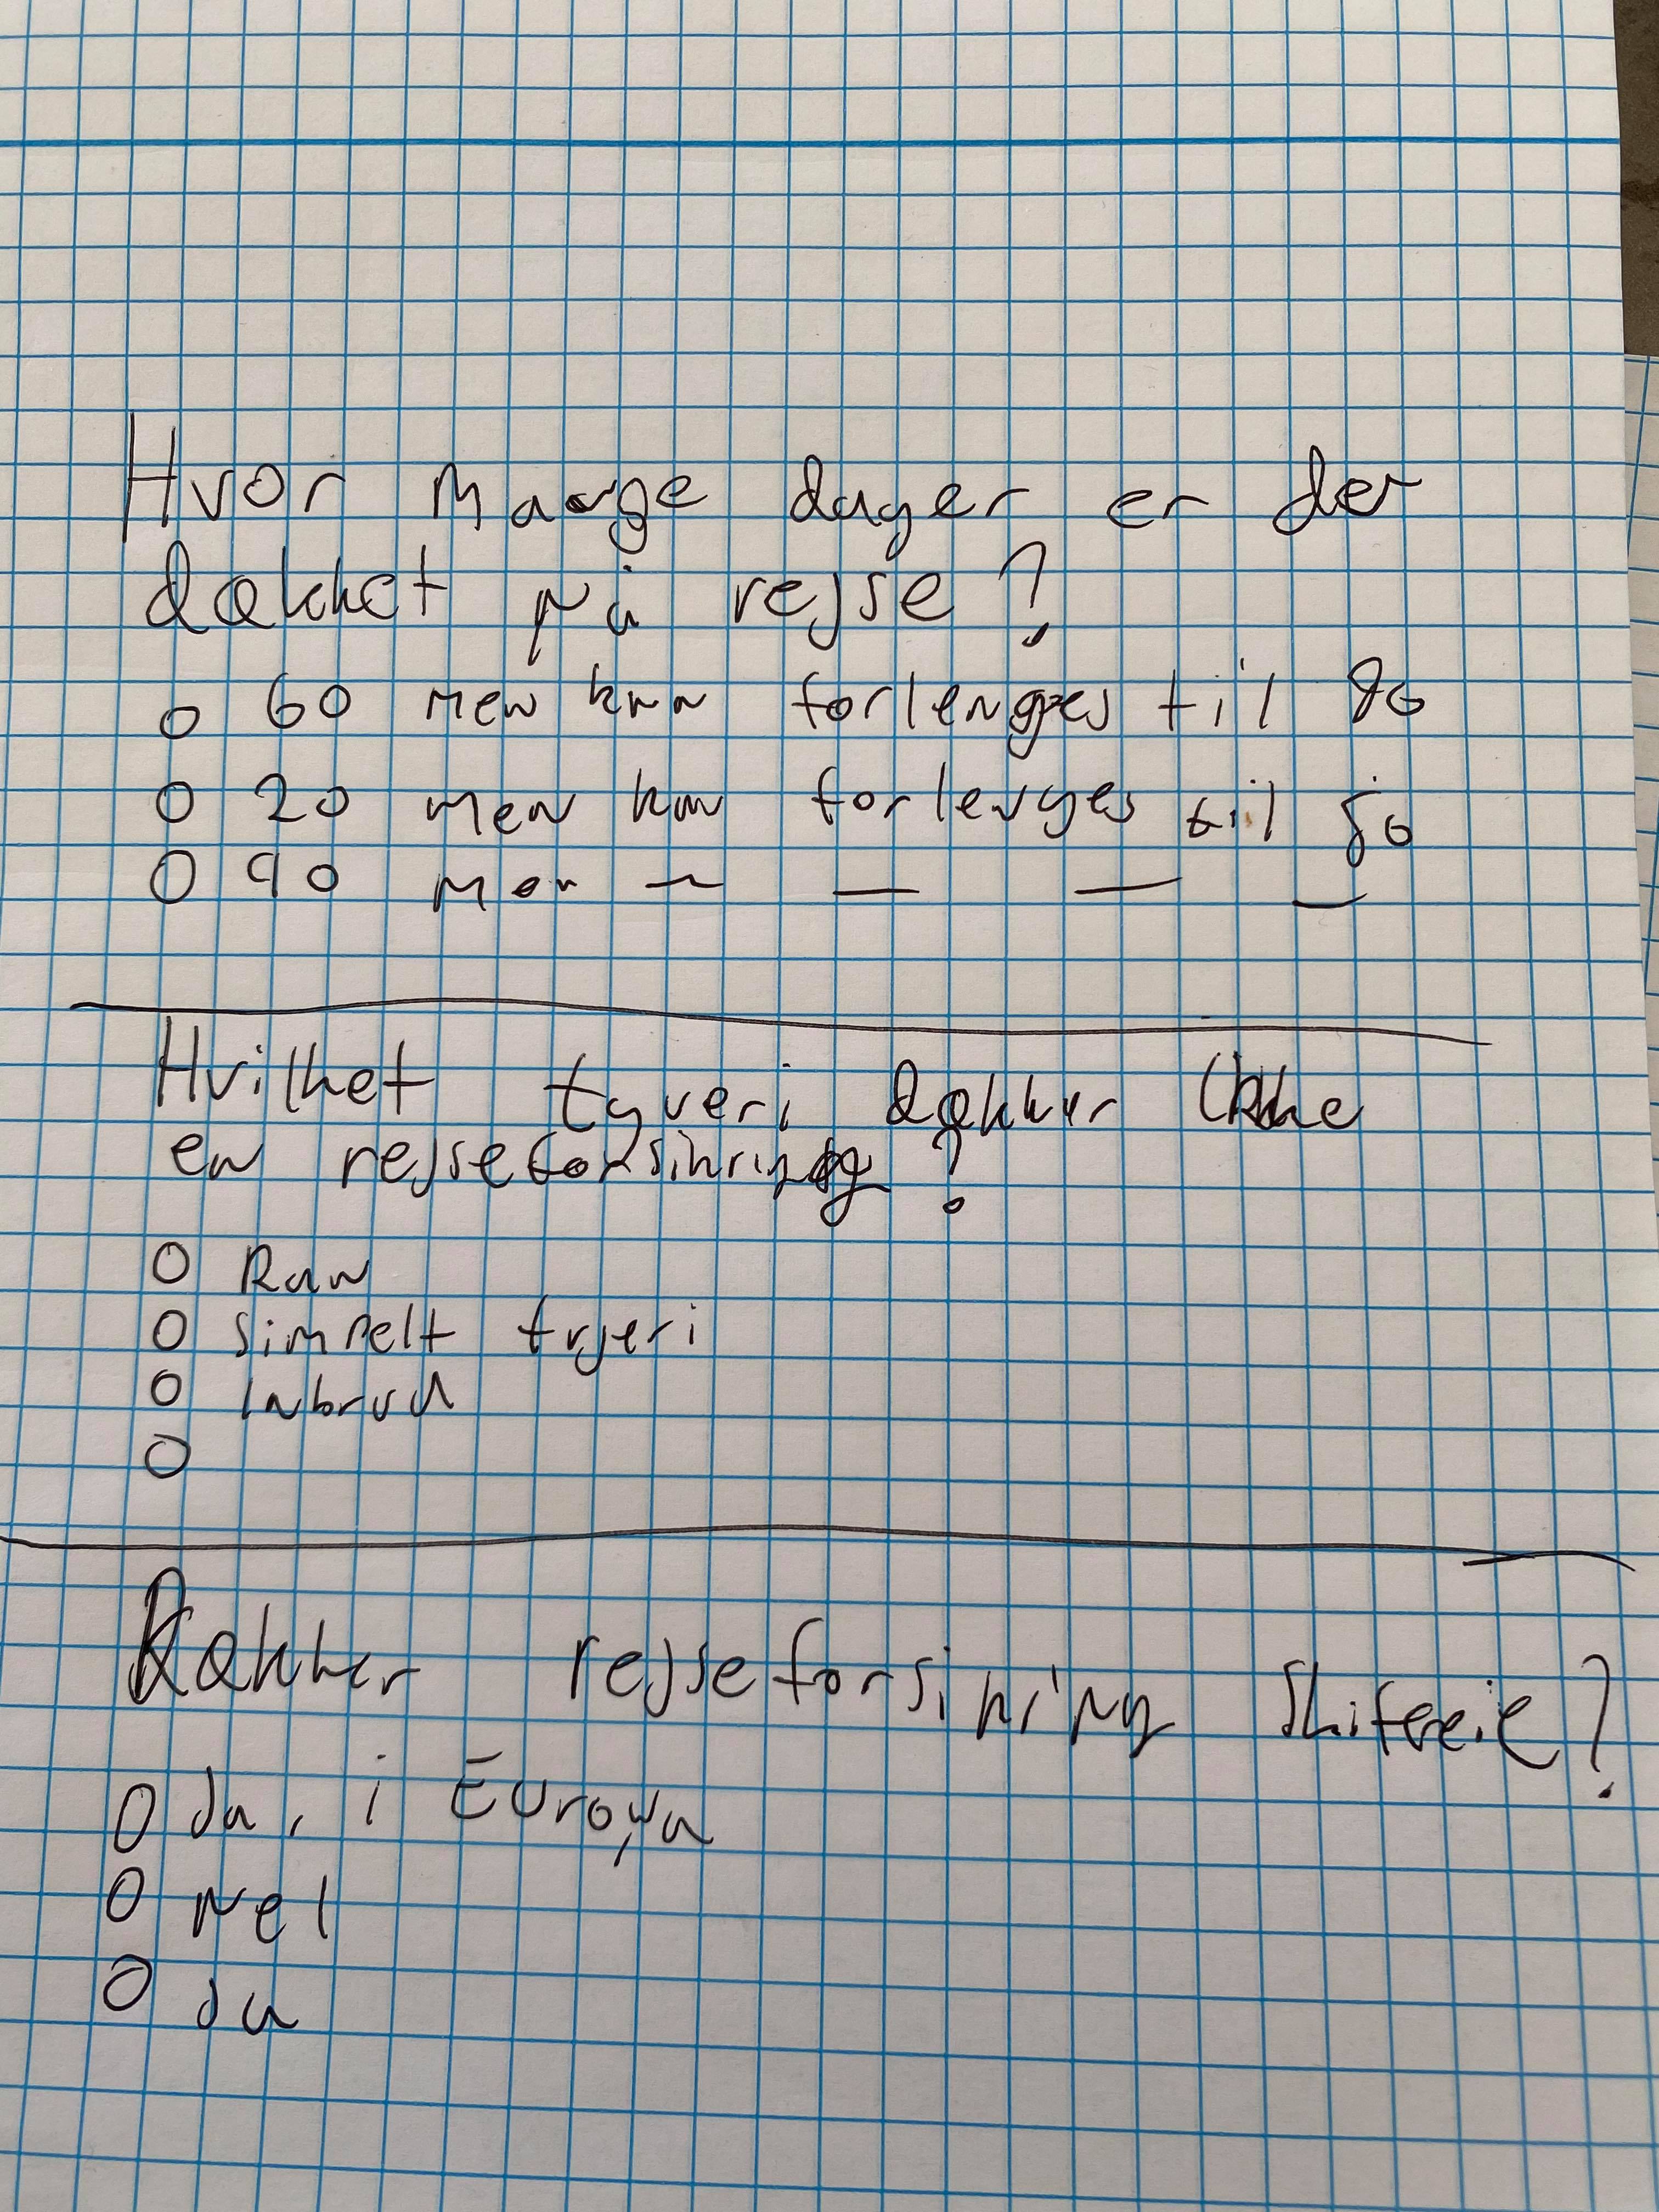 Hvor mange dager er der
dækket på rejse?
O 60 men kan forlenges til
O 20 men kan forlenges til
O 90 men — — — —
Hvilket tyveri dækker ikke
en rejseforsikring?
O Ran
O Simpelt
O Inbrud
O
Dækker rejseforsikring
O Ja, i Europa
O Nei
O Ja